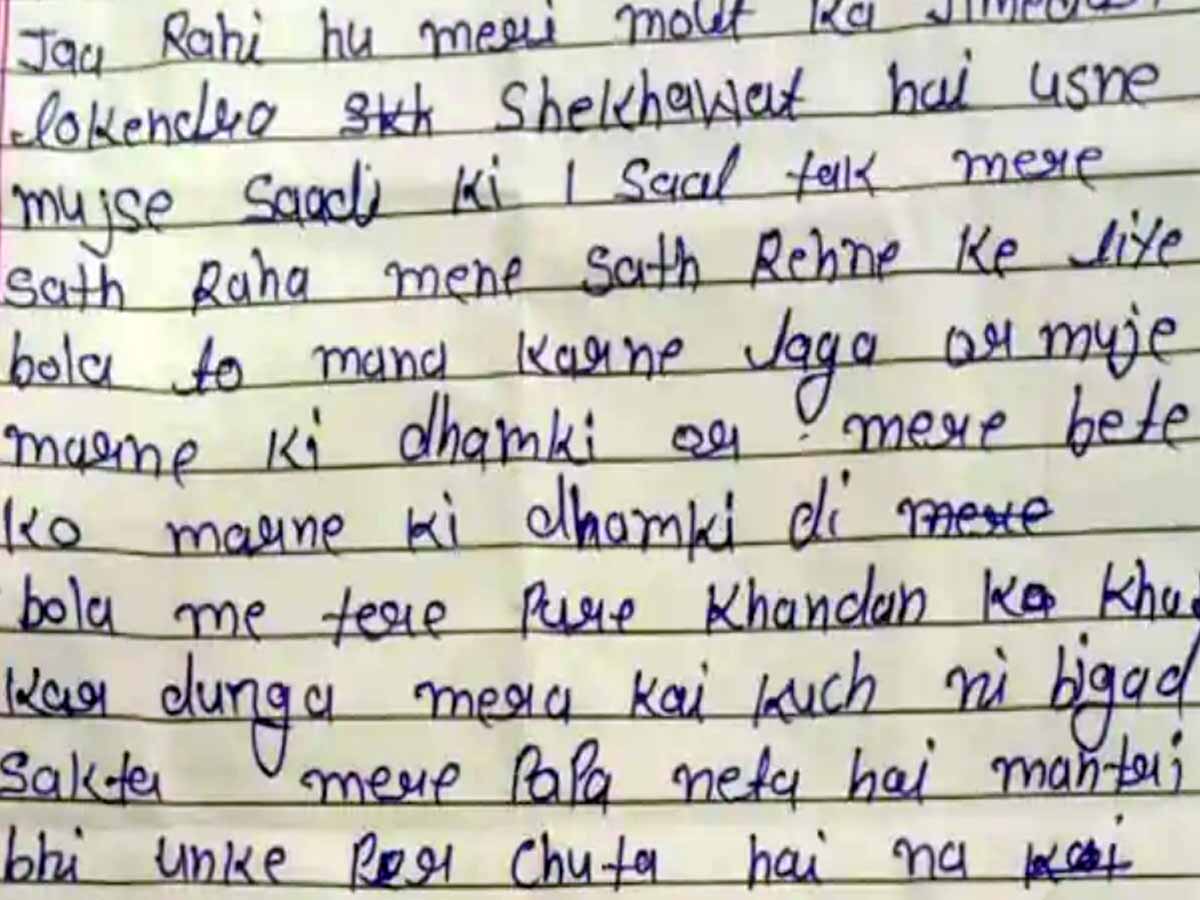 Jaa Rahi hu meri mout ka
lokendra Shekhawat hai usne
mujse Saadi ki 1 Saal tak mere
Sath Raha mene Sath Rehne ke liye
bola to mana karne laga or muje
marne ki dhamki or mere bete
ko marne ki dhamki di mere
bola me tere Pure Khandan ko
kar dunga mera kai kuch ni bigad
Sakta mere PaPa neta hai mantri
bhi unke Per Chuta hai na